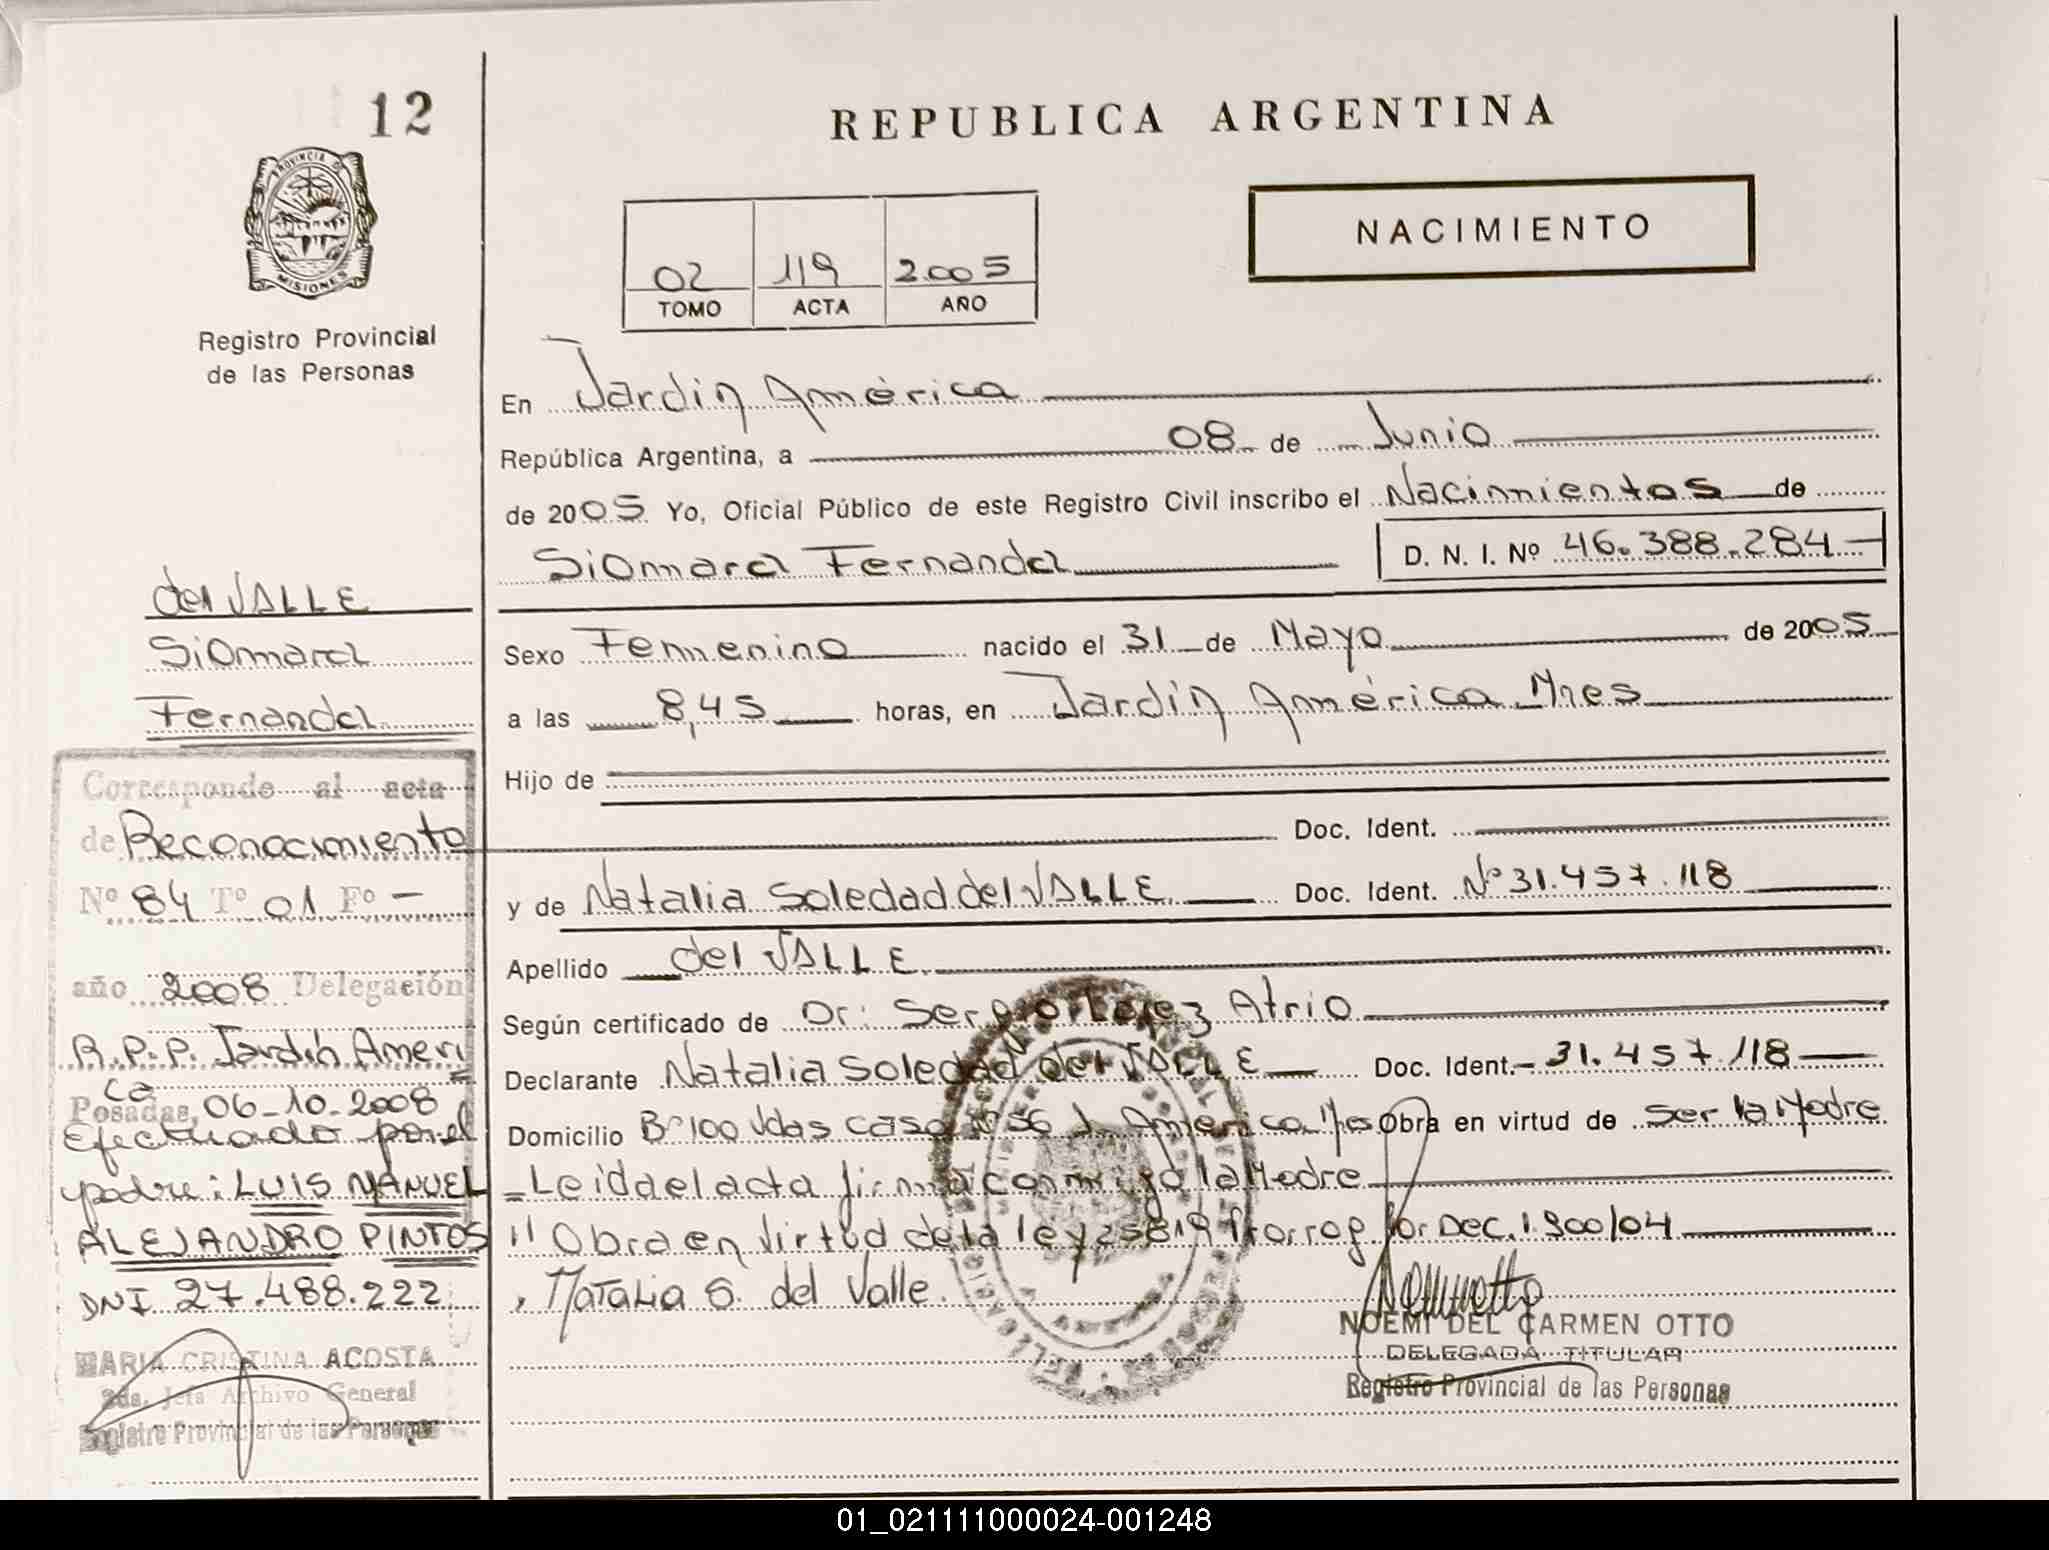 12
PROVINCIA DE
MISIONES
Registro Provincial
de las Personas
del VALLE
Siomara
Fernanda
Corresponde al acta
de Reconocimiento
Nº 84 Tº 01 Fº -
año 2008 Delegación
R.P.P. Jardín Améri
ca
Posadas, 06-10-2008
Efectuado por el
padre: LUIS MANUEL
ALEJANDRO PINTOS
DNI 27.488.222
MARIA CRISTINA ACOSTA
2da. Jefa Archivo General
Registro Provincial de las Personas
REPUBLICA ARGENTINA
NACIMIENTO
02 119 2.005
TOMO ACTA AÑO
En Jardín América
República Argentina, a 08 de Junio
de 2005 Yo, Oficial Público de este Registro Civil inscribo el Nacimientos de
Siomara Fernanda D. N. I. Nº 46.388.284
Sexo Femenino nacido el 31 de Mayo de 2005
a las 8,45 horas, en Jardín América Mnes
Hijo de
Doc. Ident.
y de Natalia Soledad del VALLE Doc. Ident. Nº 31.457.118
Apellido del VALLE
Según certificado de Dr: Sergio Lopez Atrio
Declarante Natalia Soledad del VALLE Doc. Ident. 31.457.118
Domicilio Bº 100 Vdas casa Nº 56 J. América Mes Obra en virtud de ser la Madre
Leida el acta firma conmigo la Madre
" Obra en Virtud de la ley 25819 Prorrog por Dec. 1.900/04
Natalia S. del Valle.
NOEMI DEL CARMEN OTTO
DELEGADA TITULAR
Registro Provincial de las Personas
01_021111000024-001248